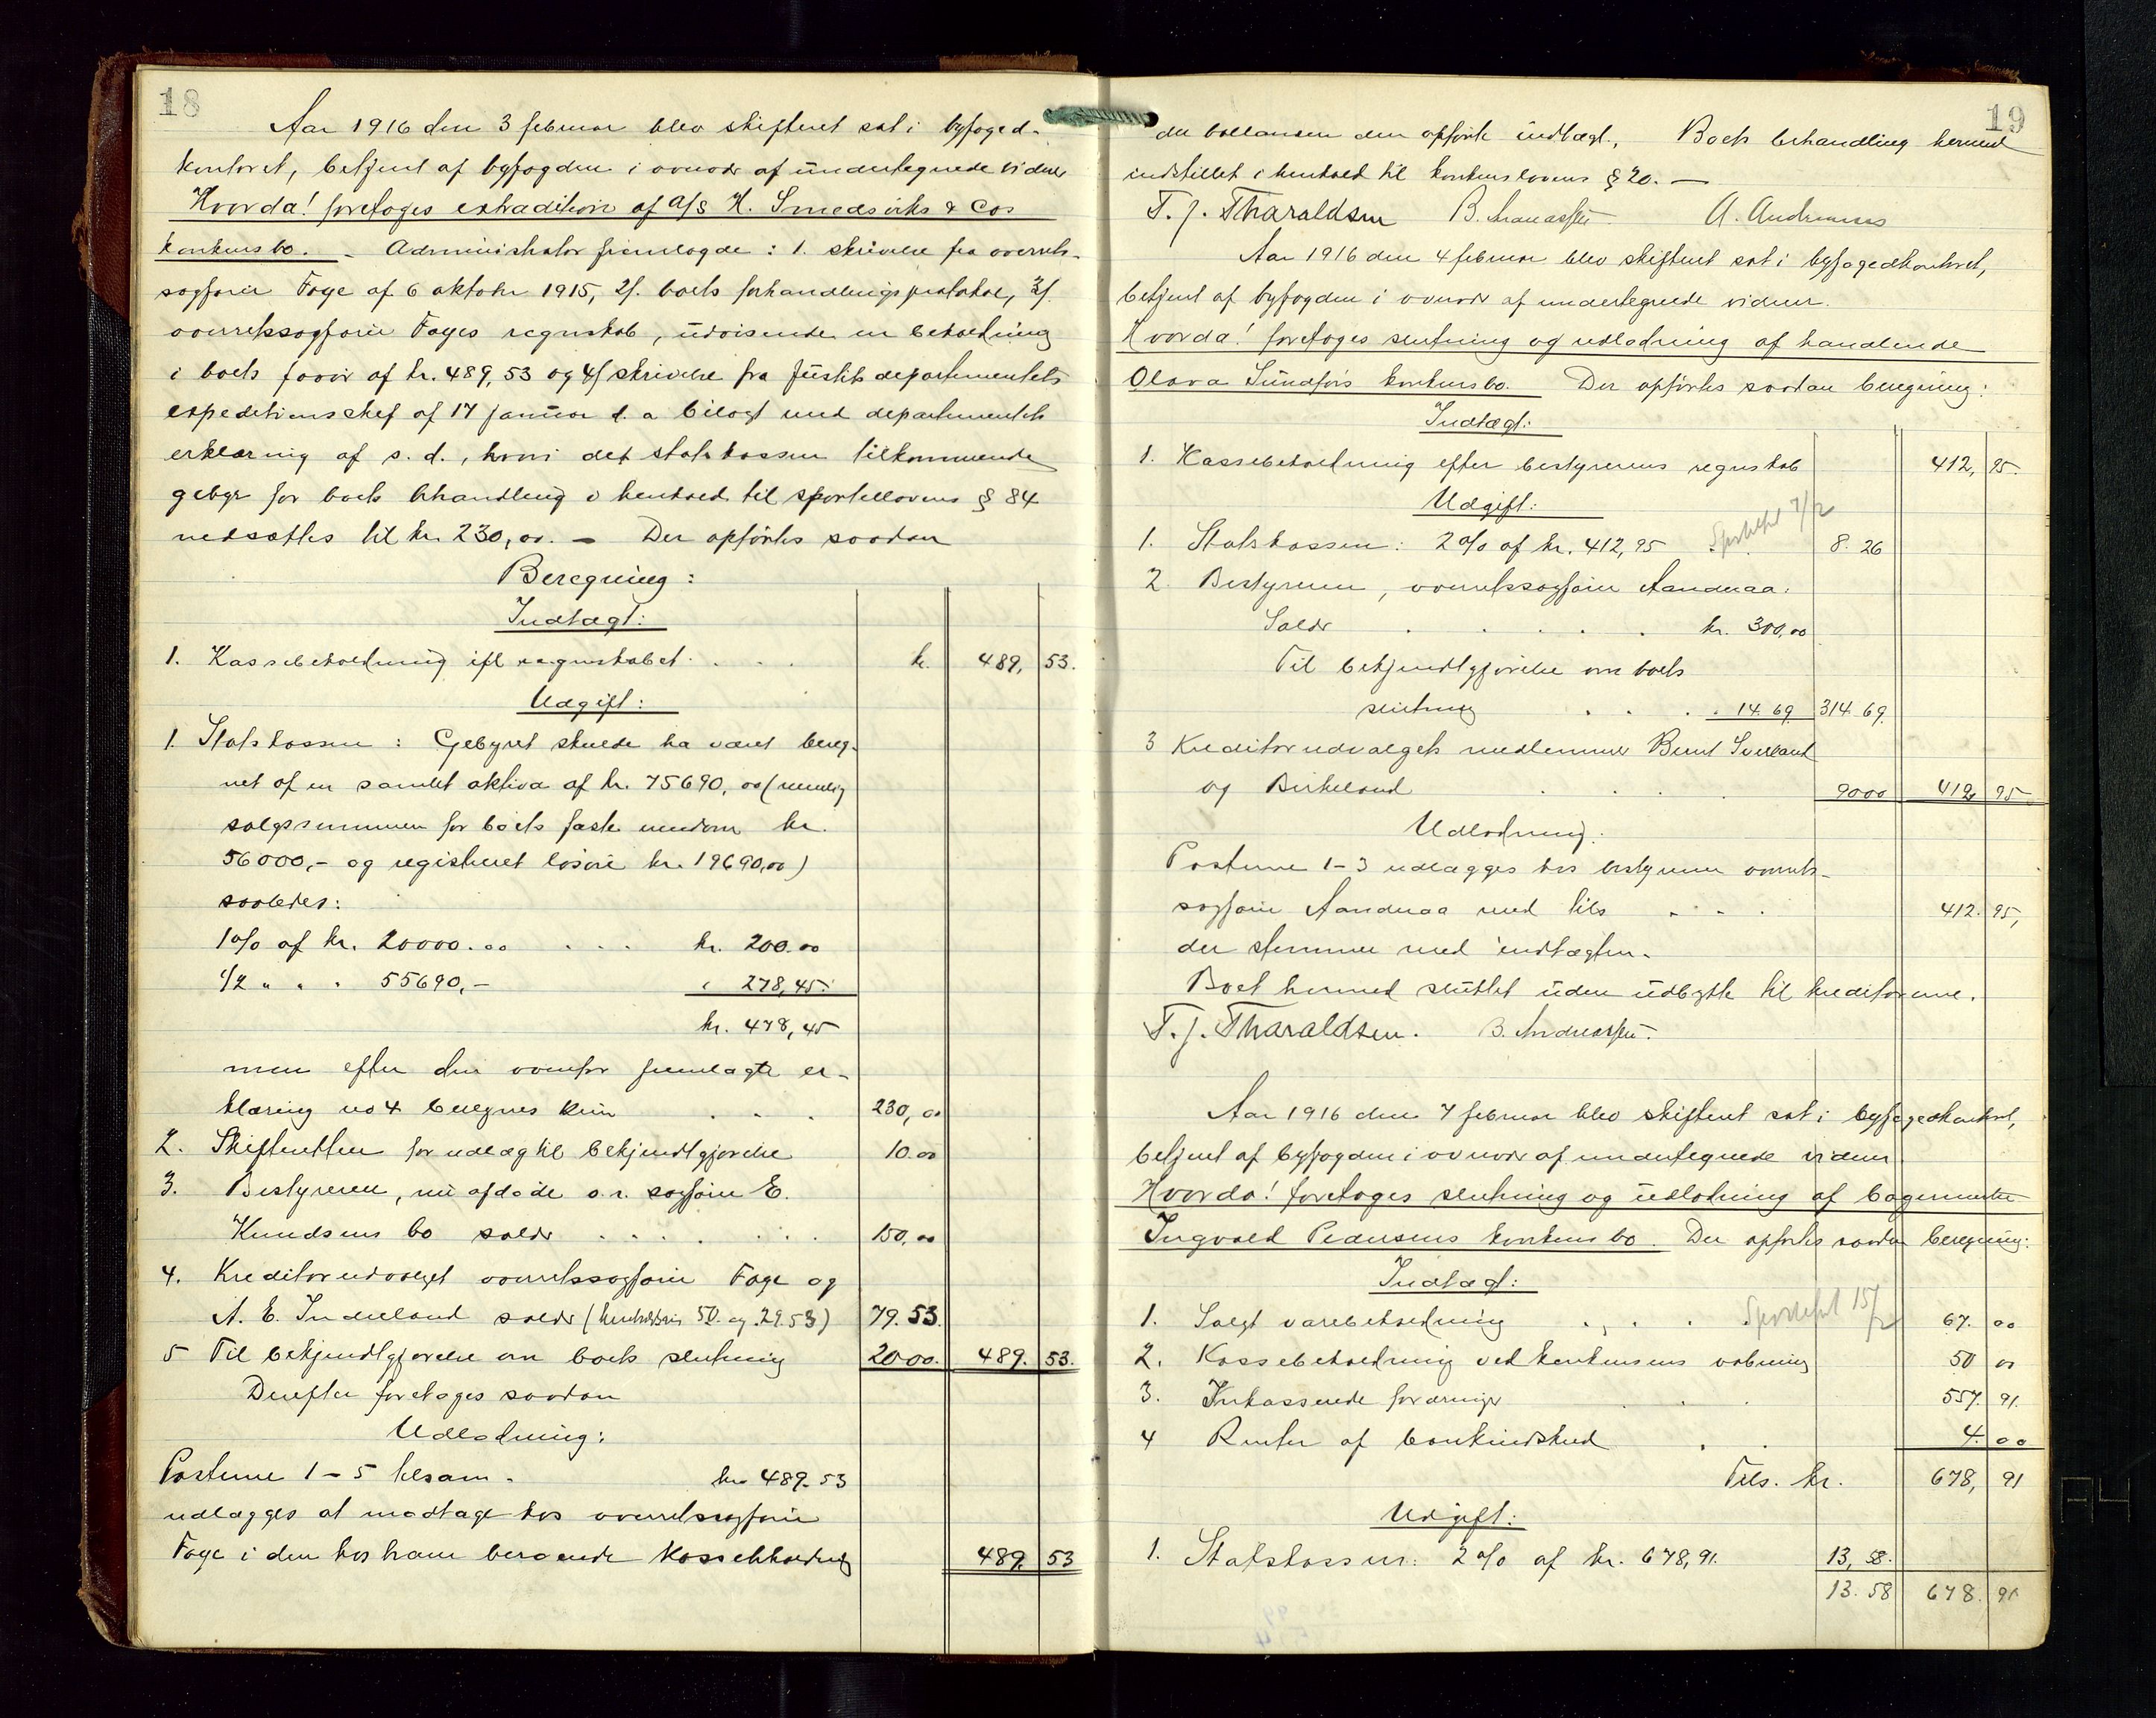 18
Aar 1916 den 3 februar blev skifteret sat i byfoged-
kontoret, betjent af byfogden i overvær af undertegnede vidner
Hvorda! foretoges extradition af A/S H. Smedsviks & Cos
konkursbo. - Administrator fremlagde: 1. skrivelse fra overrets-
sagfører Foge af 6 oktober 1915, 2/. boets forhandlingsprotokol, 3/.
overretssagfører Foges regnskab, udvisende en beholdning
i boets favør af kr. 489,53 og 4/ skrivelse fra justitsdepartementets
expeditionschef af 17 januar d. a bilagt med departementets
erklæring af s. d., hvori det statskassen tilkommende
gebyr for boets behandling i henhold til sportellovens § 84
nedsættes til kr. 230,00. - Der opførtes saadan
Beregning:
Indtægt:
1. Kassebeholdning ifl regnskabet . . . kr. 489, 53.
Udgift:
1. Statskassen: Gebyret skulde ha været bereg-
net af en samlet aktiva af kr. 75690,00 (nemlig
salgssummen for boets faste eiendom kr.
56000,- og registreret løsøre kr. 19690,00)
saaledes:
1% af kr. 20000.00 . . . kr. 200.00
1/2 " " " 55690,- " 278,45.
kr. 478,45
men efter den ovenfor fremlagte er-
klæring no 4 beregnes kun . . . 230,00
2. Skifteretten for udlæg til bekjendtgjørelse 10.00
3. Bestyreren, nu afdøde o.r. sagfører E.
Knudsens bo salær . . . . . . . 150,00
4. Kreditorudvalget overretssagfører Foge og
A. E. Inderland salær (henholdsvis 50. og 29.53) 79.53.
5 Til bekjendtgjørelse om boets slutning 2000. 489. 53.
Derefter foretages saadan
Udlodning:
Posterne 1-5 tilsam. kr 489.53
udlægges at modtage hos overretssagfører
Foge i den hos ham beroende kassebeholdning 489. 53
19
der ballanserer den opførte indtægt. Boets behandling hermed
indstillet i henhold til konkurslovens § 20. —
T. J. Tharaldsen B. Andreassen A. Andreassen
Aar 1916 den 4 februar blev skifteret sat i byfogedkontoret,
betjent af byfogden i overvær af undertegnede vidner.
Hvorda! foretoges slutning og udlodning af handlende
Olava Sundførs konkursbo. Der opførtes saadan beregning:
Indtægt:
1. Kassebeholdning efter bestyrerens regnskab 412, 95.
Udgift:
1. Statskassen: 2% af kr. 412,95 Sportelført 7/2 8.26
2 Bestyreren, overretssagfører Aanderaa:
Salær . . . . . kr. 300,00
Til bekjendtgjørelse om boets
slutning . . . . 14.69 314.69
3 Kreditorudvalgets medlemmer Bernt Sverland
og Birkeland . . . 9000 412, 95
Udlodning:
Posterne 1-3 udlægges hos bestyreren overrets-
sagfører Aanderaa med tils . . . . 412. 95,
der stemmer med indtægten.
Boet hermed sluttet uden udbytte til kreditorerne.
T. J. Tharaldsen. B. Andreassen.
Aar 1916 den 7 februar blev skifteret sat i byfogedkontoret,
betjent af byfogden i overvær af undertegnede vidner
Hvorda! foretoges slutning og udlodning af bagermester
Ingvald Pedersens konkursbo. Der opførtes saadan beregning:
Indtægt:
1. Solgt varebeholdning . . . . Sportelført 15/2 67. 00
2. Kassebeholdning ved konkursens aabning 50 00
3. Inkasserede fordringer . . . 557. 91.
4 Renter af bankindskud . . 4. 00
Tils. kr. 678, 91
Udgift:
1. Statskassen: 2% af kr. 678,91. 13,58.
13.58 678. 91